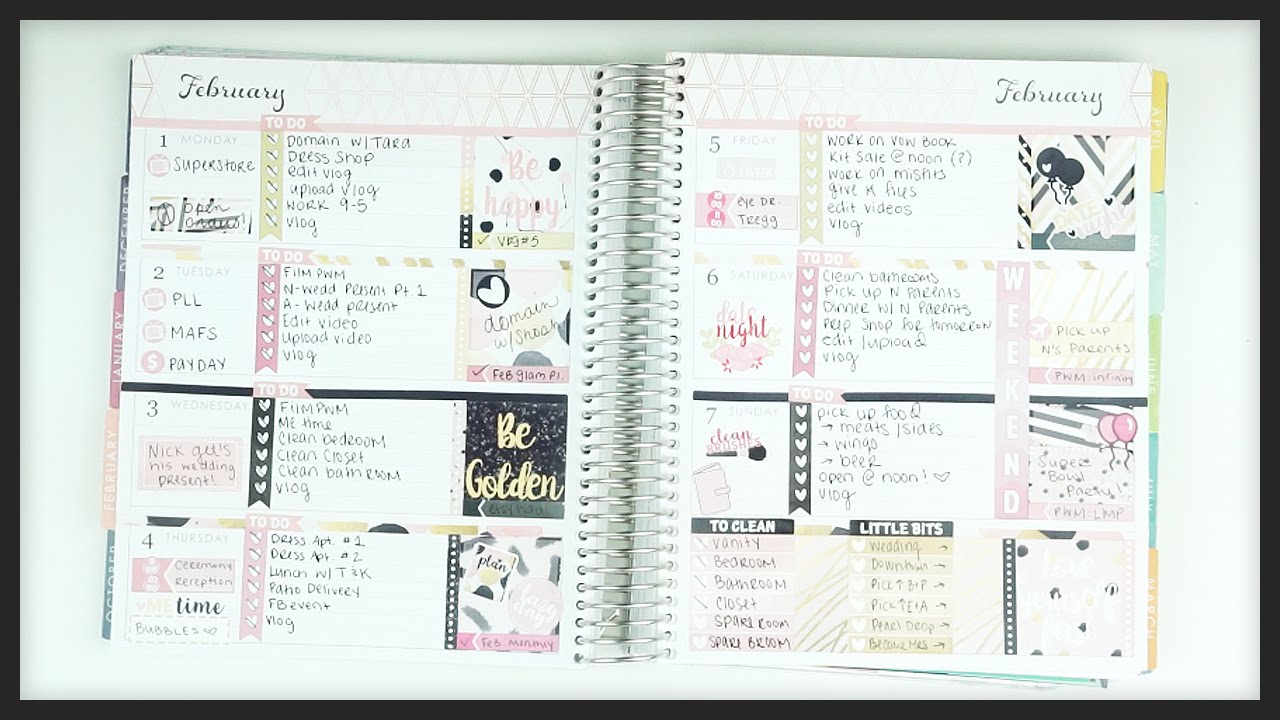 February
TO DO
1 MONDAY
SUPERSTORE
open
Domain w/ TARA
DRESS SHOP
edit vlog
upload vlog
WORK 9-5
vlog
Be
happy
Vlog #5
2 TUESDAY
PLL
MAFS
PAYDAY
TO DO
FILM PWM
N-WEDD PRESENT PT. 1
A-WEDD PRESENT
EDIT VIDEO
UPLOAD VIDEO
VLOG
domain
Feb glam pl.
3 WEDNESDAY
NICK gets
his wedding
present!
TO DO
FILM PWM
ME time
Clean bedroom
Clean Closet
Clean bathroom
VLOG
Be
Golden
etsy haul
4 THURSDAY
Ceremony
Reception
ME time
BUBBLES
TO DO
Dress Apt. #1
Dress Apt. #2
Lunch w/ T&K
Patio Delivery
FB event
Vlog
plan
Feb. monthly
February
TO DO
5 FRIDAY
1 WEEK
eye DR.
Tregg
WORK ON VOW BOOK
Kit Sale @ noon (?)
WORK on misfits
give K files
edit videos
vlog
DATE
6 SATURDAY
date
night
TO DO
Clean bathrooms
Pick up N Parents
Dinner w/ N Parents
Prep Shop for tomorrow
edit/upload
vlog
WEEKEND
Pick up
N's Parents
PWM:infinity
7 SUNDAY
clean
BRUSHES
TO DO
pick up food
→ meats/sides
→ wings
→ beer
open @ noon! ♡
vlog
Super
Bowl
Party!
PWM:LMP
TO CLEAN
Vanity
Bedroom
Bathroom
Closet
Spare room
Spare Broom
LITTLE BITS
Wedding →
Downtum →
Pick ↑ B+P →
Pick ↑ E+A →
Pearl Drop →
Become Mrs →
DECEMBER
JANUARY
FEBRUARY
OCTOBER
APRIL
MAY
JUNE
JULY
MARCH